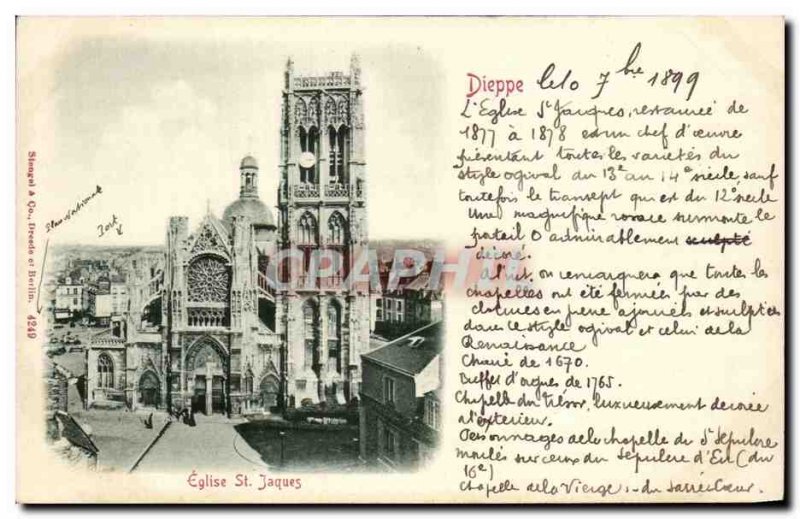 Dieppe le 10 7bre 1899
L'Eglise St Jacques, restaurée de
1877 à 1878 est un chef d'œuvre
présentant toutes les variétés du
style ogival du 13e au 14e siècle, sauf
toutefois le transept qui est du 12e siècle
Une magnifique rosace surmonte le
portail O admirablement sculpté
décoré.
A l'int, on remarquera que toutes les
chapelles ont été fermées par des
clotures en pierre ajourées et sculptées
dans le style ogival et celui de la
Renaissance
Chaire de 1670.
Buffet d'orgues de 1765.
Chapelle du trésor, luxueusement décorée
à l'extérieur.
Personnages de la chapelle du St Sépulcre
moulés sur ceux du sépulcre d'Eu (du
16e)
Chapelle de la Vierge, - du Sacré Cœur.
Port
Stengel & Co., Dresde et Berlin. 4249
CPARPHIL
Église St. Jaques